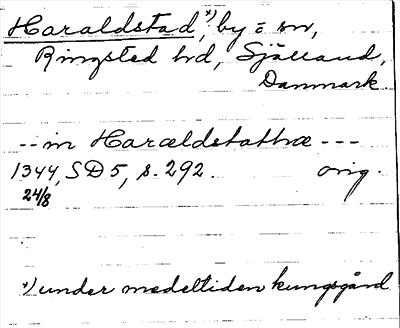 Haraldstad,*) by o sn,
Ringsted hd, Själland,
Danmark.
--in Haraldstathæ ---
1344, SD 5, s. 292. orig.
24/8
*) under medeltiden kungsgård